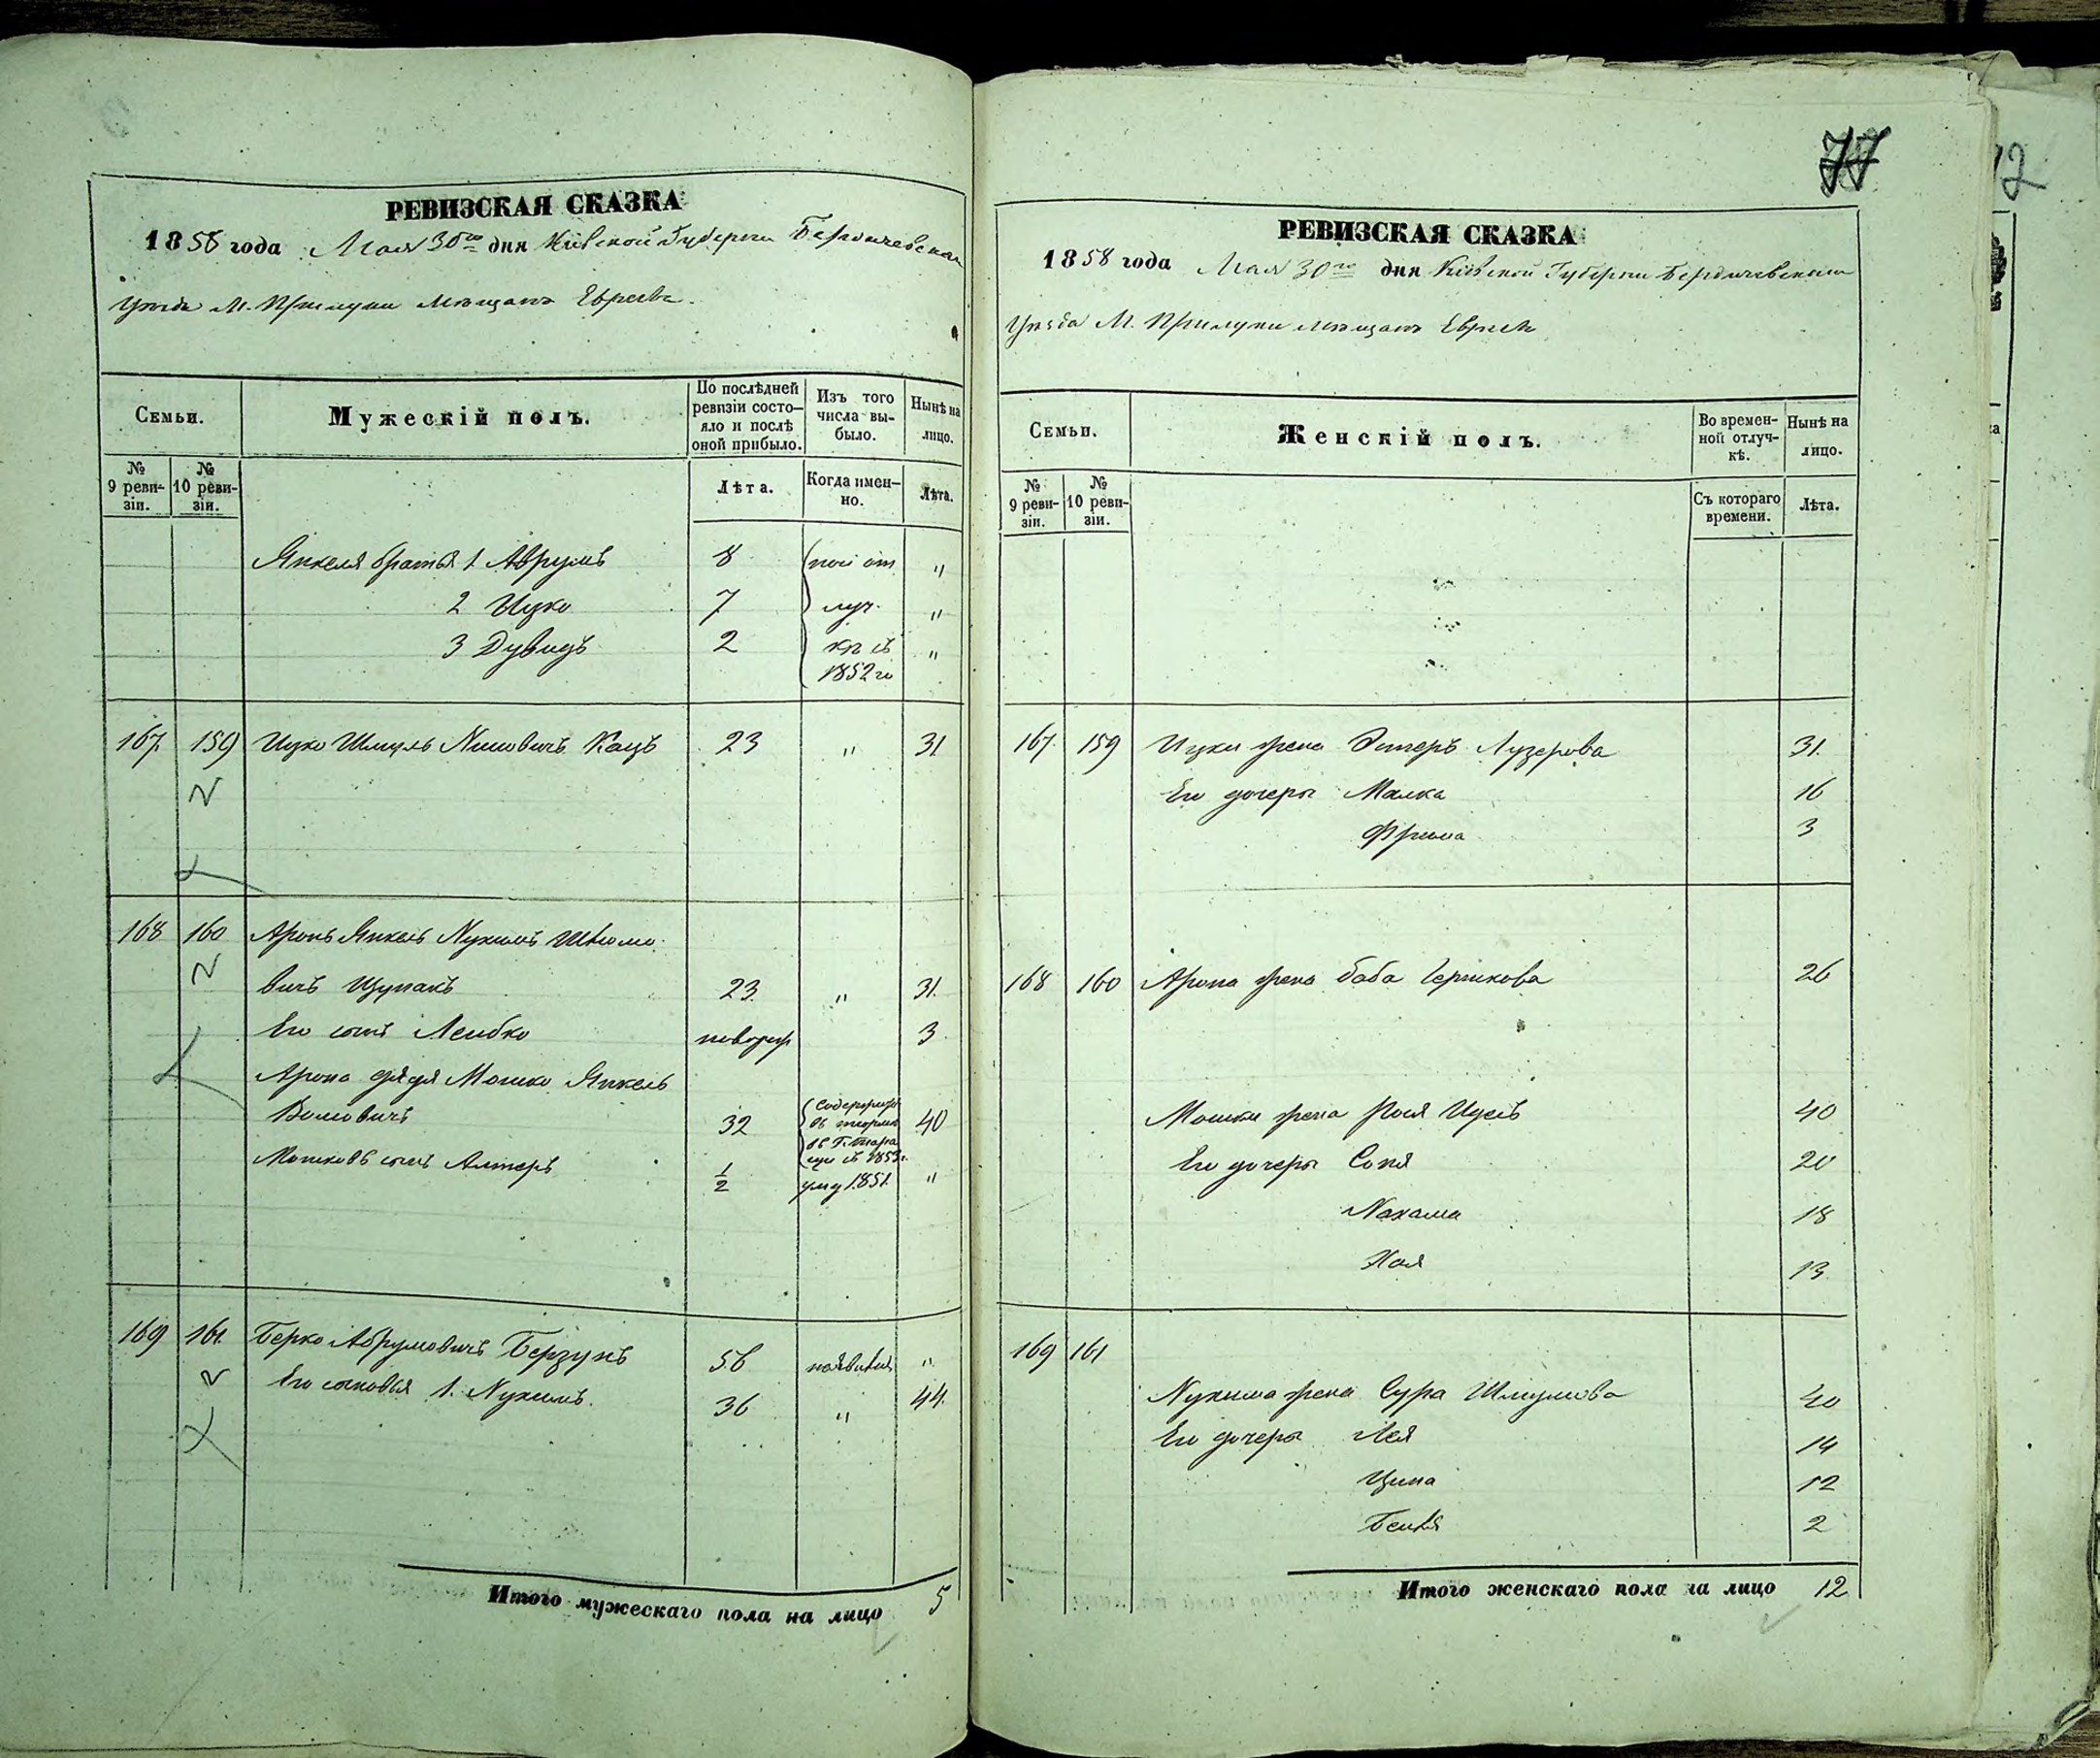 77
12
РЕВИЗСКАЯ СКАЗКА
1858 года Мая 30го дня Кіевской Губерніи Бердичевскаго
Уѣзда М. Прилуки мѣщанъ Евреевъ.
Семьи.
Мужескій полъ.
По послѣдней ревизіи состояло и послѣ оной прибыло.
Изъ того числа выбыло.
Нынѣ на лицо.
№ 9 ревизіи.
№ 10 ревизіи.
Лѣта.
Когда именно.
Лѣта.
Янкеля братья 1 Аврумъ 8 "
2 Ицко 7 "
3 Дувидъ 2 "
1852го
167 159 Ицко Шмуль Кацъ 23 " 31
168 160 Аронъ Янкель Нухимъ
вичъ Щупакъ 23 " 31.
Его сынъ Лейбко 3
Арона дядя Мошко Янкель
32 содерж въ тюрьмѣ въ Г. Тараще съ 1853г. 40
Мошковъ сынъ Алтеръ 1/2 1851 "
169 161. Берко Аврумовичъ 56 "
Его сыновья 1. Нухимъ. 36 " 44.
Итого мужескаго пола на лицо 5
РЕВИЗСКАЯ СКАЗКА
1858 года Мая 30го дня Кіевской Губерніи Бердичевскаго
Уѣзда М. Прилуки мѣщанъ Евреевъ
Семьи.
Женскій полъ.
Во временной отлучкѣ.
Нынѣ на лицо.
№ 9 ревизіи.
№ 10 ревизіи.
Съ котораго времени.
Лѣта.
167 159 Ицки жена Эстеръ Лузерова 31.
Его дочери Малка 16
Фрима 3
168 160 Арона жена Баба Гершкова 26
Мошки жена 40
Его дочери Соня 20
Нахама 18
Хая 13
169 161
Нухима жена Сура Шмулова 40
Его дочери Лея 14
Ципа 12
Бейля 2
Итого женскаго пола на лицо 12